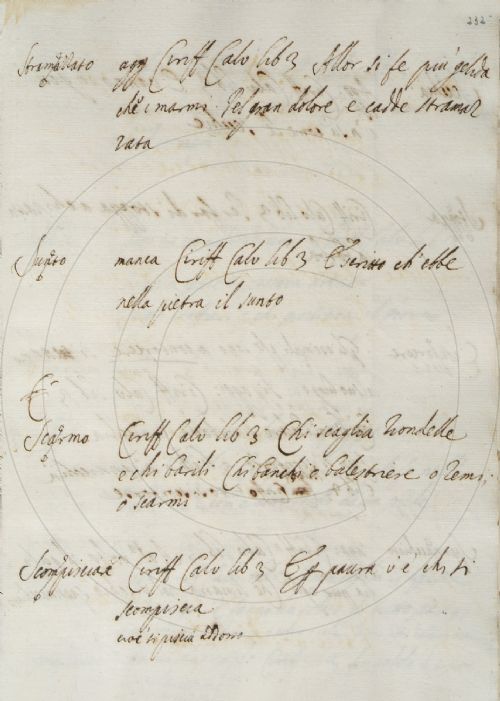 232
Stramazzato agg Ciriff Calv lib 3 Allor si fe più gelida
che i marmi Pel gran dolore e cadde stramaz
zata
Sunto manca Ciriff Calv lib 3 E scritto ch' ebbe
nella pietra il sunto
Scarmo Ciriff Calv lib 3 Chi scaglia rondelle
o chi barili Chi banchi e balestriere o remi
o scarmi
Scompisciare Ciriff Calv lib 3 E paura v e chi ti
scompiscia
cioè si piscia addosso